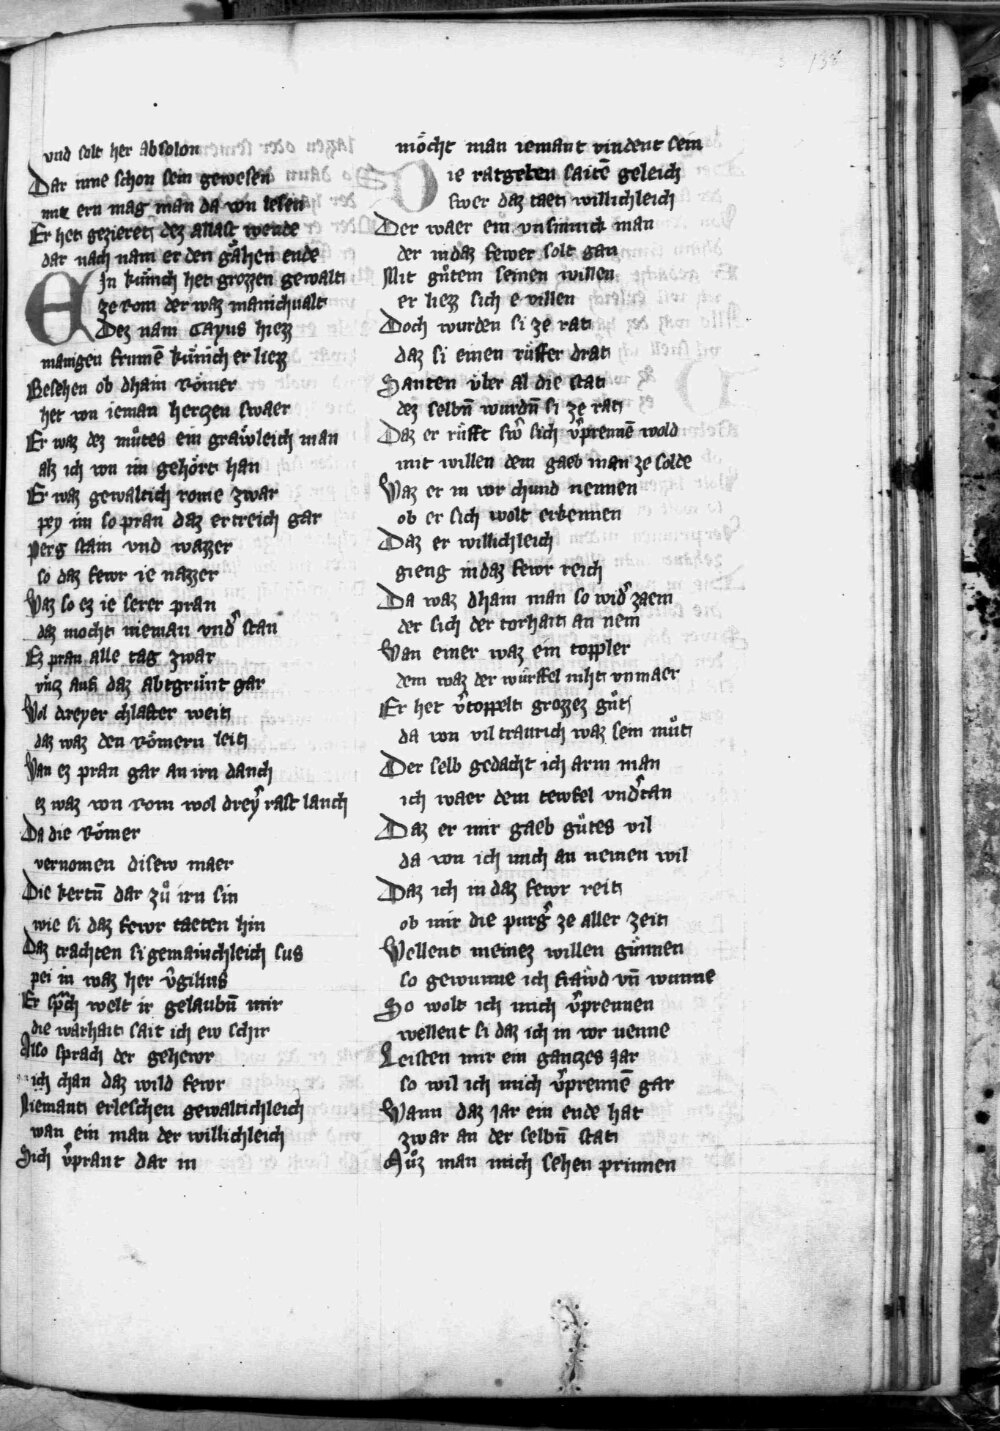 138
vnd solt her absolon
Dar inne schon sein gewesen
mit ern mag man da von lesen
Er het gezieret dez allast wende
dar nach nam er den gaͤhen ende
Ein kuͤnich het grozzen gewalt
ze rom der waz manichualt
Dez nam Cayus hiezz
manigen frumē kuͤnich er liezz
Besehen ob dhain Roͤmer
het von ieman herczen swaer
Er waz dez muͦtes ein graͤwleich man
alz ich von im gehoͤrt han
Er waz gewaltich rome zwar
pey im so pran daz ertreich gar
perg stain vnd wazzer
so daz fewr ie nazzer
Waz so ez ie serer pran
daz mocht nieman vnd' stan
Ez pran alle tag zwar
vͤncz auf daz abtgruͤnt gar
Wol dreyer chlaffter weit
daz waz den Roͤmern leit
Wan ez pran gar an irn danch
ez waz von rom wol drey rast lanch
Da die Roͤmer
vernomen disew maer
Die kertn̄ dar zuͦ irn sin
wie si daz fewr taeten hin
Daz trachten si gemainchleich sus
pei in waz her v'gilius
Er sp̄ch welt ir gelaubn̄ mir
die warhait sait ich ew schir
Also sprach der gehewr
ich chan daz wild fewr
Niemant erleschen gewaltichleich
wan ein man der willichleich
Sich v'prant dar in
moͤcht man iemant vindent sein
Die ratgeben saitē geleich
swer daz taet willichleich
Der waer ein vnsinnich man
der in daz fewer solt gan
Mit guͤtem seinen willen
er liezz sich e villen
Doch wurden si ze rat
daz si einen ruͤffer drat
Santen vber al die stat
dez selbn̄ wurdn̄ si ze rat
Daz er ruͤfft sw' sich v'prennē wold
mit willen dem gaeb man ze solde
Waz er in vor chund nennen
ob er sich wolt erkennen
Daz er willichleich
gieng in daz fewr reich
Da waz dhain man so wid' zaem
der sich der torhait an nem
Wan einer waz ein toppler
dem waz der wuͤrffel niht vnmaer
Er het v'toppelt grozzez guͦt
da von vil traurich waz sein muͦt
Der selb gedacht ich arm man
ich waer dem tewfel vnd'tan
Daz er mir gaeb guͤtes vil
da von ich mich an nemen wil
Daz ich in daz fewr reit
ob mir die purg' ze aller zeit
Wellent meinez willen guͤnnen
so gewunne ich fraͤwd vn̄ wunne
So wolt ich mich v'prennen
wellent si daz ich in vor nenne
Leisten mir ein ganczes jar
so wil ich mich v'prennē gar
Wann daz jar ein ende hat
zwar an der selbn̄ stat
Muͦz man mich sehen prinnen